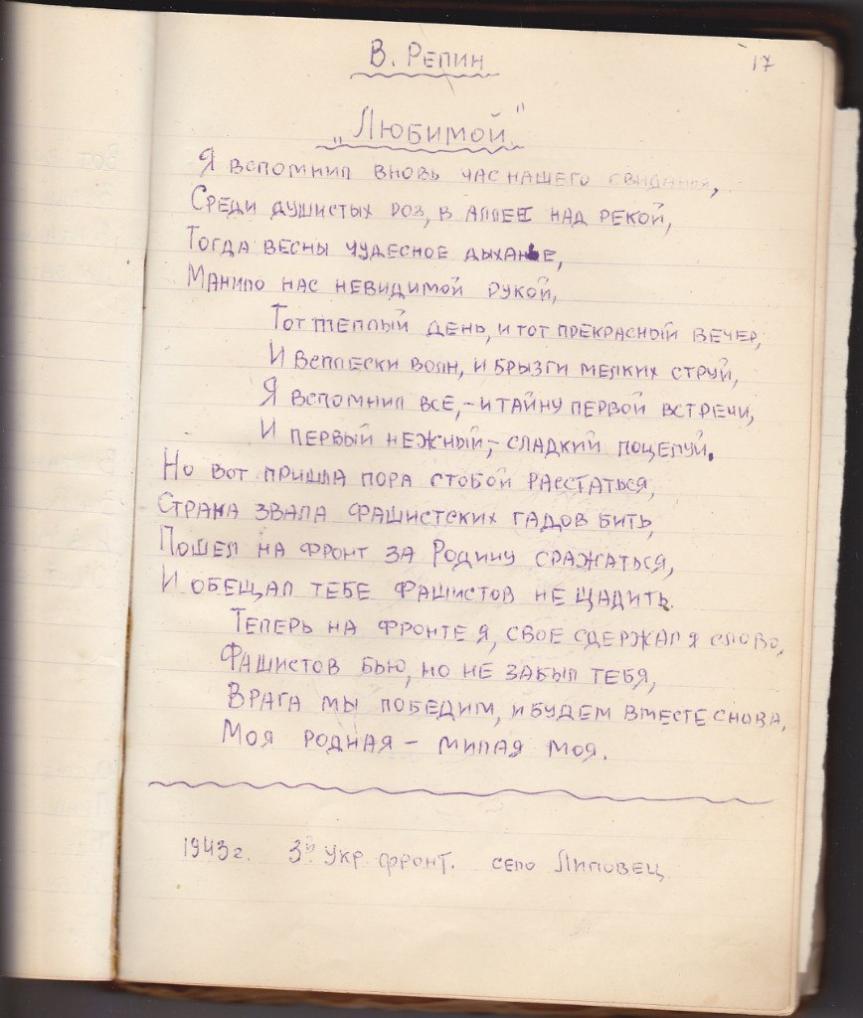 В. Репин
17
„Любимой"
Я вспомнил вновь час нашего свиданья,
Среди душистых роз, в аллее над рекой,
Тогда весны чудесное дыханье,
Манило нас невидимой рукой,
Тот теплый день, и тот прекрасный вечер,
И всплески волн, и брызги мелких струй,
Я вспомнил все,- и тайну первой встречи,
И первый нежный,- сладкий поцелуй.
Но вот пришла пора стобой расстаться,
Страна звала фашистских гадов бить,
Пошел на фронт за Родину сражаться,
И обещал тебе фашистов не щадить.
Теперь на фронте я, свое сдержал я слово,
Фашистов бью, но не забыл тебя,
Врага мы победим, и будем вместе снова,
Моя родная – милая моя.
1943г. 3й Укр. фронт. село Липовец